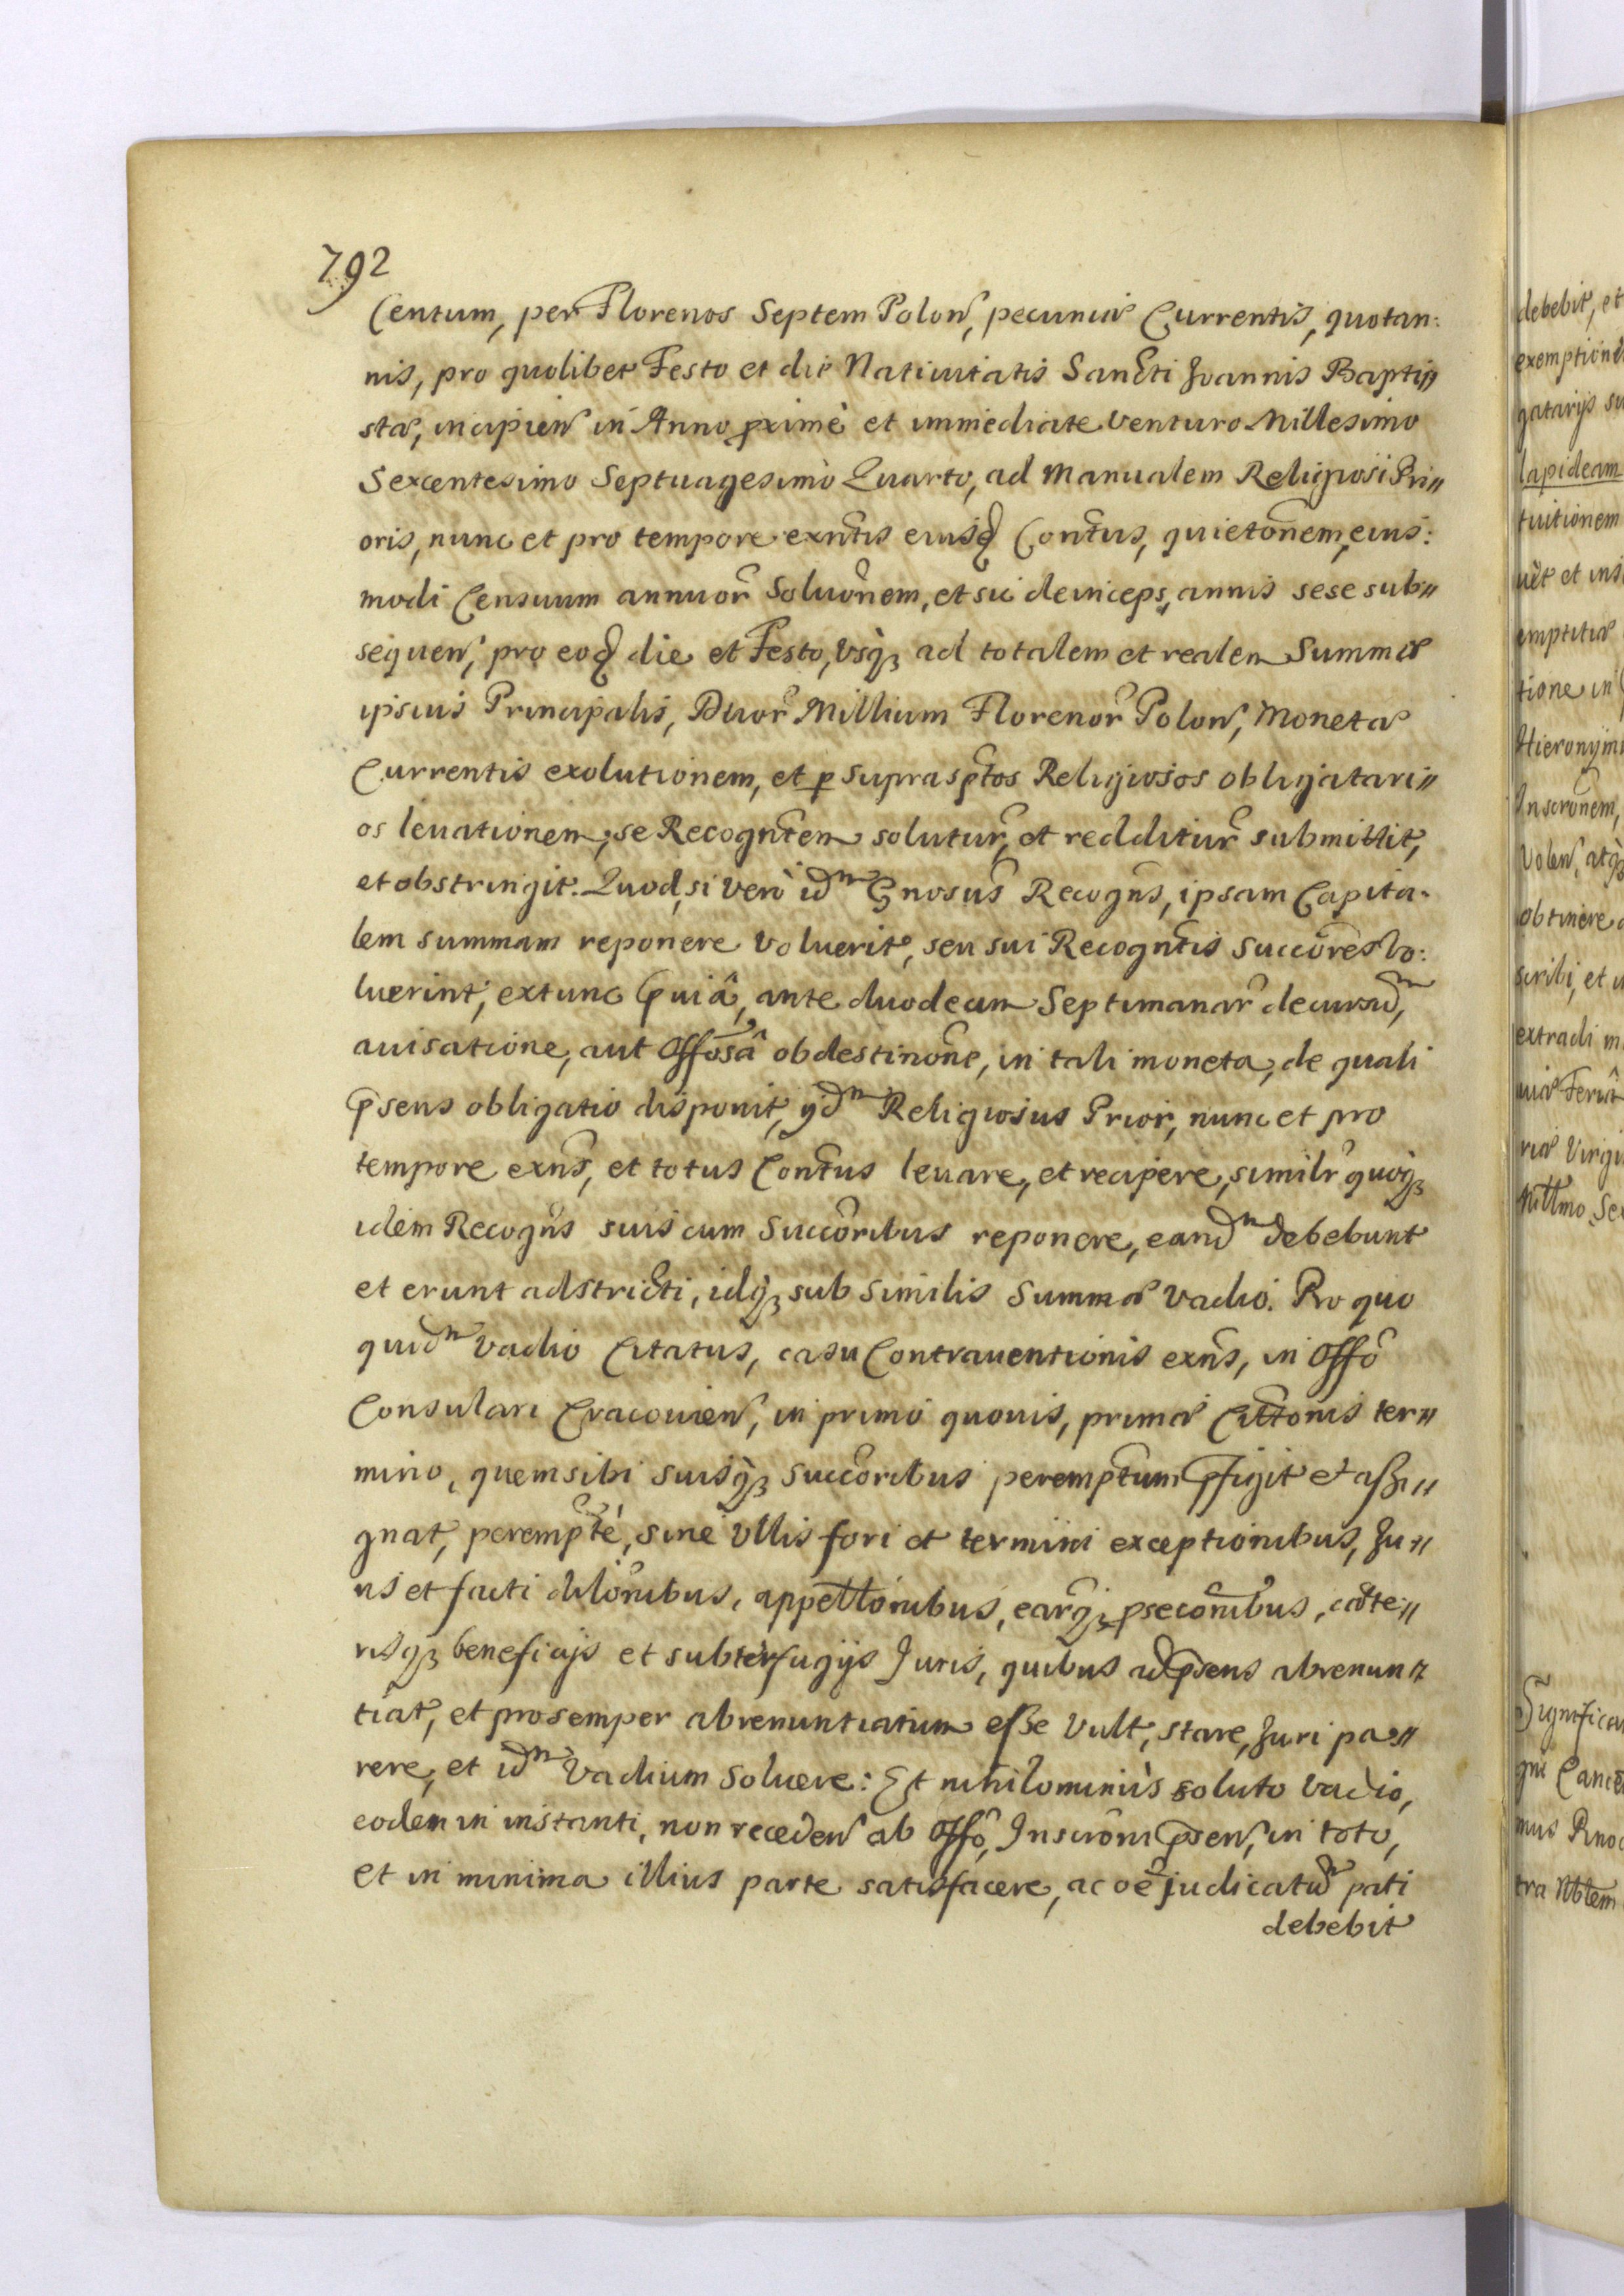 792
Centum, per Florenos Septem Polon, pecuniæ Currentis, quotan:
nis, pro quolibet Festo et die Natiuitatis Sancti Joannis Bapti〃
stæ, incipien in Anno pximè et immediate venturo Millesimo
Sexcentesimo Septuagesimo Quarto, ad Manualem Religiosi Pri〃
oris, nunc et pro tempore exntis eiusq Contus, quietonem, eius:
modi Censuum annuor Soluonem, et sic deinceps, annis sese sub〃
sequen, pro eoq die et Festo, vsq3 ad totalem et realem Summæ
ipsius Principalis, Duor Millium Florenor Polon, Monetæ
Currentis exolutionem, et p suprasptos Religiosos obligatari〃
os leuationem, se Recogntem solutur, et redditur submittit,
et obstringit. Quod, si verò idm Gnosus Recogns, ipsam Capita-
lem summam reponere voluerit, seu sui Recogntis Succores vo:
luerint, extunc Pviâ, ante duodecim Septimanar decursum,
auisatione, aut Offosâ obdestinone, in tali moneta, de quali
psens obligatio disponit, ydm Religiosus Prior, nunc et pro
tempore exns, et totus Contus leuare, et recipere, similr quoq3
idem Recogns suis cum Succoribus reponere, eandm debebunt
et erunt adstricti, idq3 sub similis Summæ vadio. Pro quo
quidm vadio Citatus, casu Contrauentionis exns, in Offo
Consulari Cracouien, in primo quouis, primæ Cittonis ter〃
mino, quem sibi suisq3 succoribus peremptum pfigit et assi〃
gnat, perempte, sine vllis fori et termini exceptionibus, Ju〃
ris et facti dilonibus, appellonibus, earq3 psecombus, cæte〃
risq3 beneficijs et subterfugijs Juris, quibus ad psens abrenun〃
tiat, et pro semper abrenuntiatum esse vult, stare, Juri pa〃
rere, et idm vadium Soluere: Et nihilominùs soluto vadio,
eodem in instanti, non receden ab Offo, Inscrôni psen, in toto,
et in minima illius parte satisfacere, ac oe judicatum pati
debebit
debebit, et
exemptione
gatarijs su
lapideam
tuitionem
uêt et ins
emptitiæ
tione in
Hieronym
Inscrônem,
volen, atq3
obtinere
scribi, et
extradi m
riæ Virgi
Millmo Se
Significa
gni Canc
mus Rno
tra Nblem